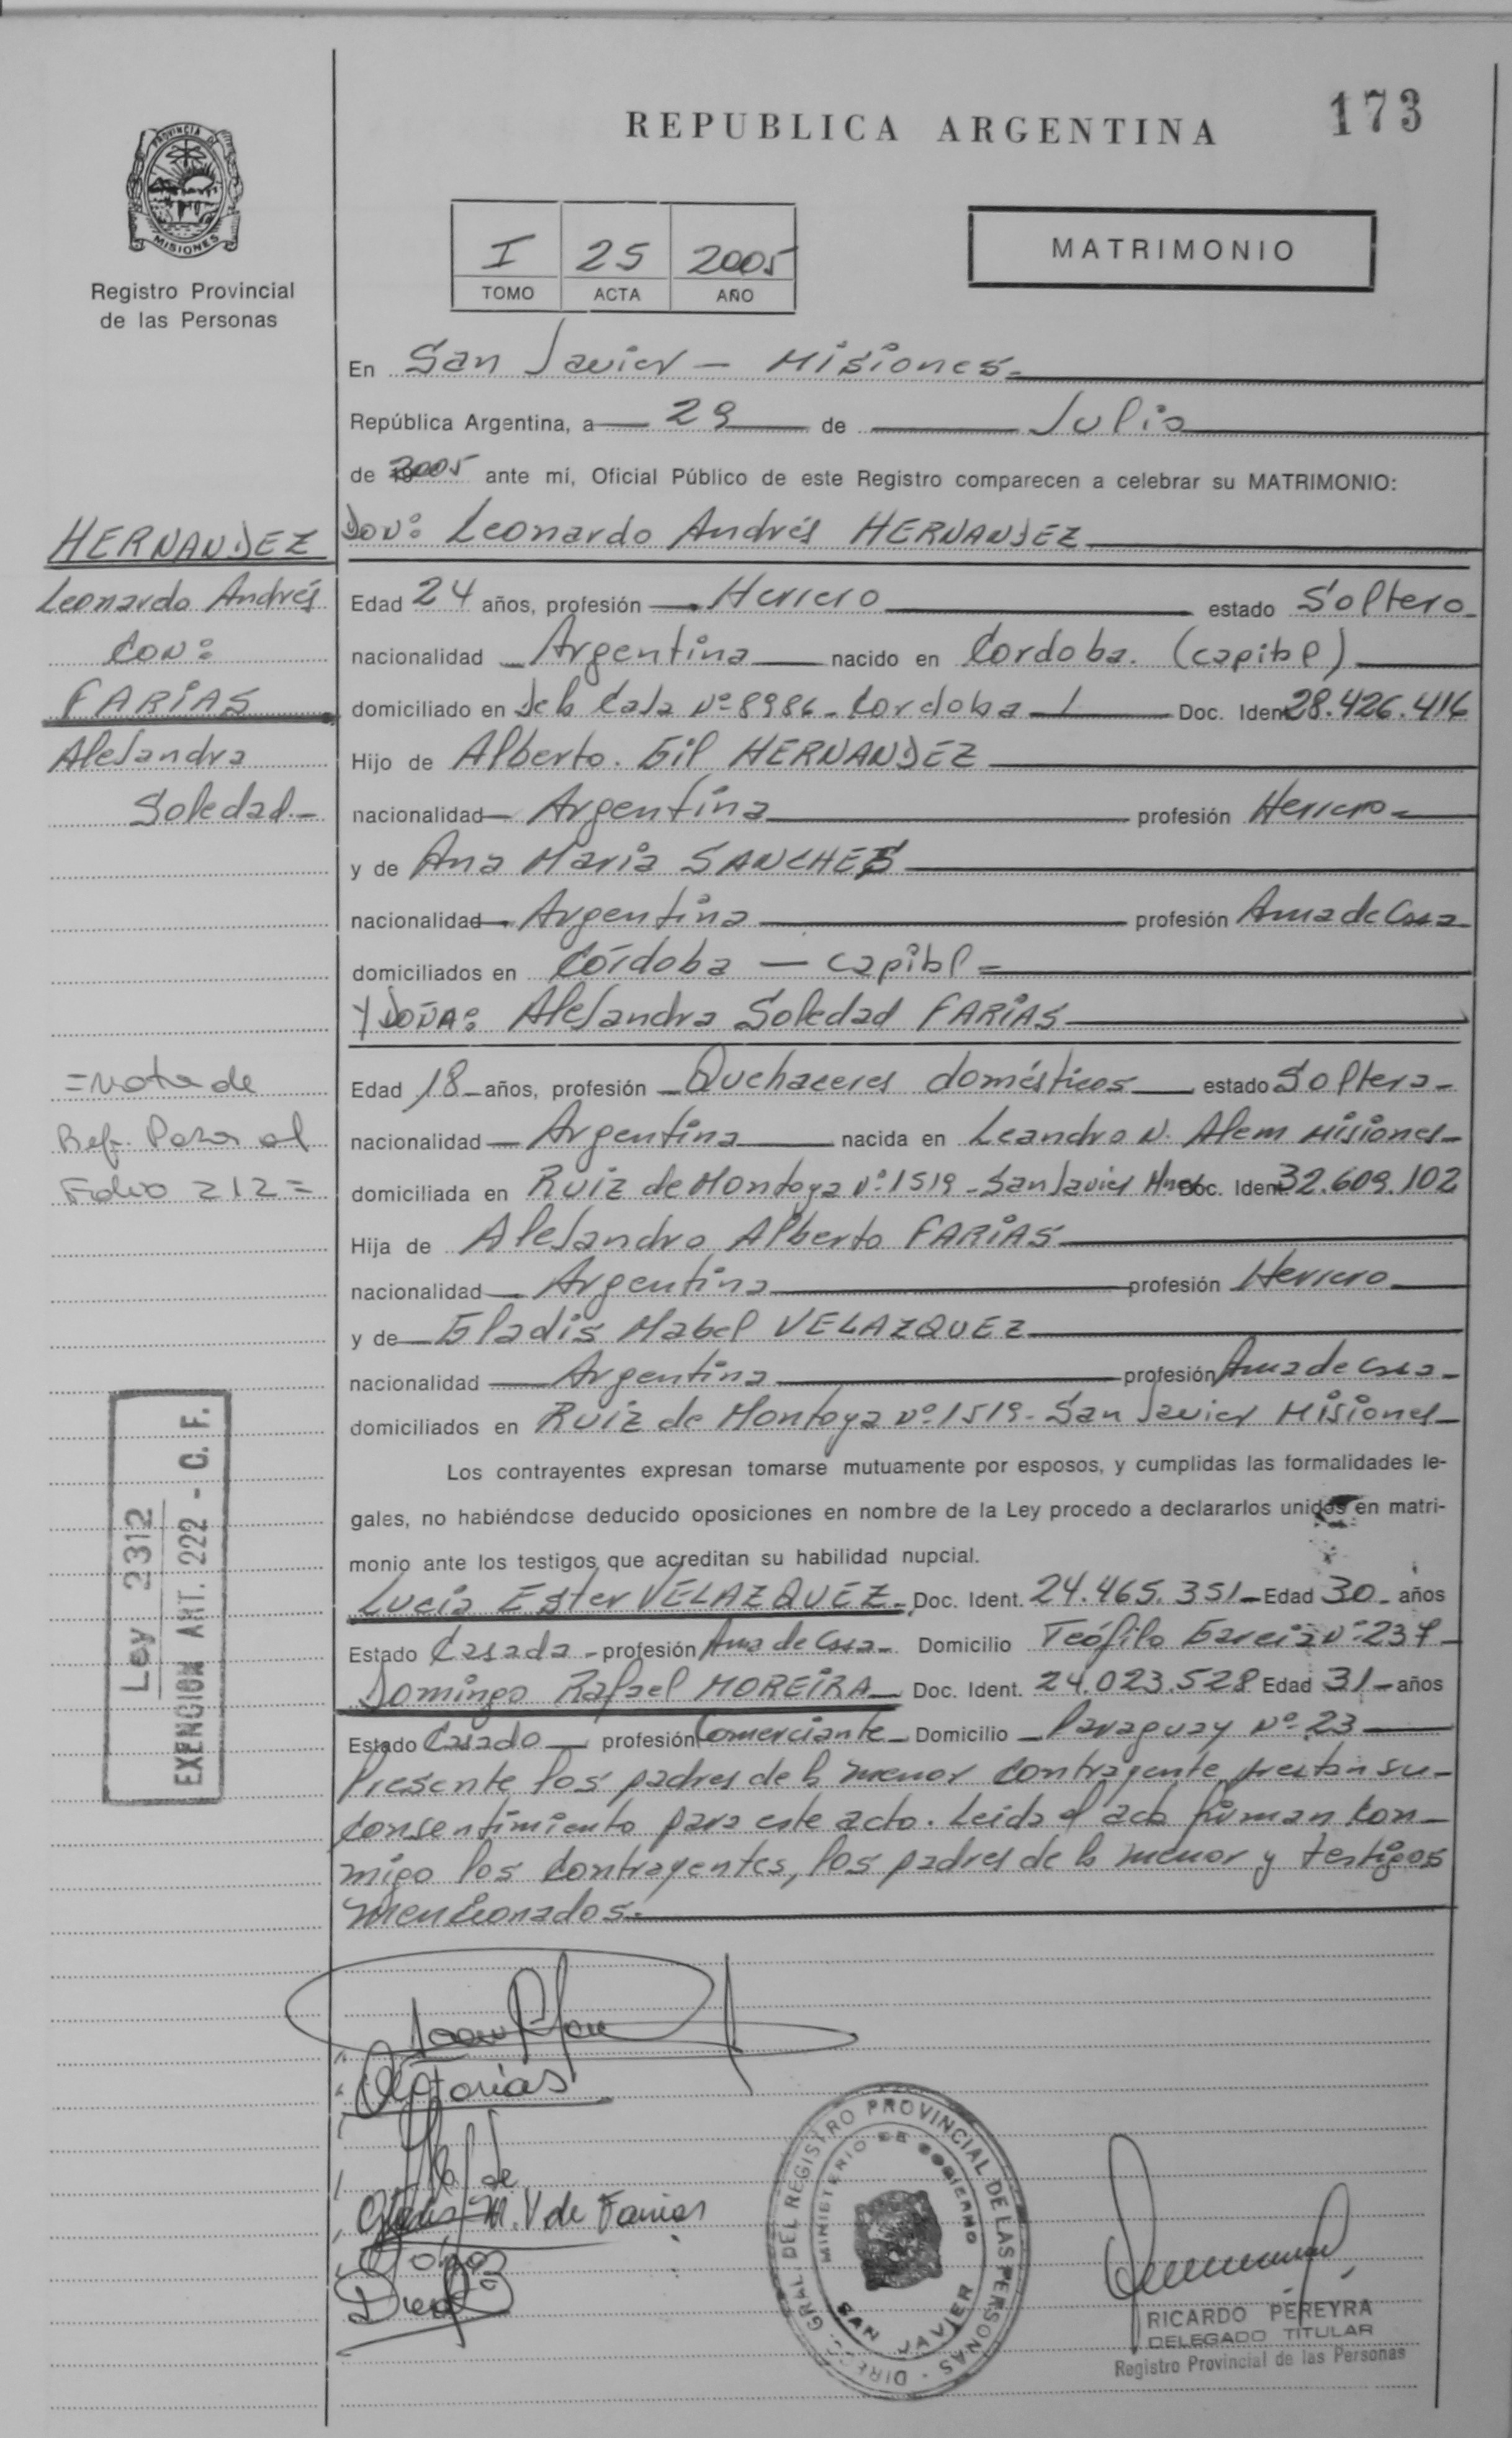 REPUBLICA ARGENTINA
173
PROVINCIA DE
MISIONES
Registro Provincial
de las Personas
I 25 2005
TOMO ACTA AÑO
MATRIMONIO
En San Javier — Misiones.
República Argentina, a 29 de Julio
de 2005 ante mí, Oficial Público de este Registro comparecen a celebrar su MATRIMONIO:
HERNANDEZ
Leonardo Andrés
Con:
FARIAS
Alejandra
Soledad.-
Don: Leonardo Andrés HERNANDEZ
Edad 24 años, profesión Herrero estado Soltero
nacionalidad Argentina nacido en Cordoba. (capital)
domiciliado en De la Cala Nº 8986 - Cordoba Doc. Iden 28.426.416
Hijo de Alberto. Gil HERNANDEZ
nacionalidad Argentina profesión Herrero
y de Ana Maria SANCHEZ
nacionalidad Argentina profesión Ama de Casa
domiciliados en Córdoba — capital =
Y DOÑA: Alejandra Soledad FARIAS
=Nota de
Ref. Pasa al
Folio 212=
Edad 18 años, profesión Quehaceres domésticos estado Soltera
nacionalidad Argentina nacida en Leandro N. Alem Misiones
domiciliada en Ruiz de Montoya Nº 1519 - San Javier Mnes Doc. Iden 32.609.102
Hija de Alejandro Alberto FARIAS
nacionalidad Argentina profesión Herrero
y de Gladis Mabel VELAZQUEZ
nacionalidad Argentina profesión Ama de Casa
domiciliados en Ruiz de Montoya Nº 1519 - San Javier Misiones
Los contrayentes expresan tomarse mutuamente por esposos, y cumplidas las formalidades le-
gales, no habiéndose deducido oposiciones en nombre de la Ley procedo a declararlos unidos en matri-
monio ante los testigos que acreditan su habilidad nupcial.
Lucia Ester VELAZQUEZ Doc. Ident. 24.465.351 Edad 30 años
Estado Casada profesión Ama de Casa Domicilio Teófilo Garcia Nº 237
Domingo Rafael MOREIRA Doc. Ident. 24.023.528 Edad 31 años
Estado Casado profesión Comerciante Domicilio Paraguay Nº 23
Presente los padres de la menor contrayente prestan su
consentimiento para este acto. Leida el acta firman con-
migo los contrayentes, los padres de la menor y testigos
mencionados.
Ley 2312
EXENCION ART. 222 - C. F.
M. V de Farias
DIREC. GRAL. DEL REGISTRO PROVINCIAL DE LAS PERSONAS
MINISTERIO DE GOBIERNO
SAN JAVIER
RICARDO PEREYRA
DELEGADO TITULAR
Registro Provincial de las Personas